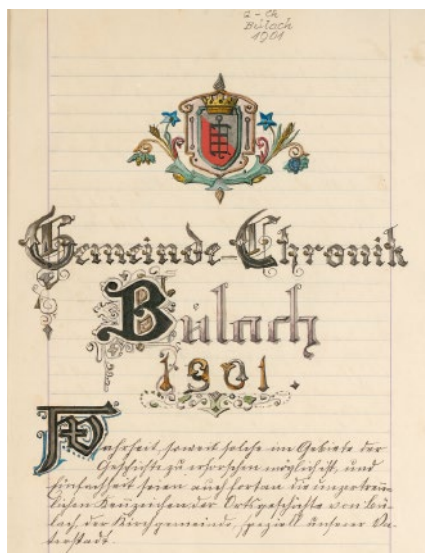 G - Ch
Bülach
1901
Gemeinde-Chronik
Bülach
1901.
Wahrheit, soweit solche im Gebiete der
Geschichte zu erforschen möglich ist, und
Einfachheit seien auch fortan die unzertrenn-
lichen Kennzeichen der Ortsgeschichte von Bü-
lach, der Kirchgemeinde, speziell unserer Va-
terstadt.